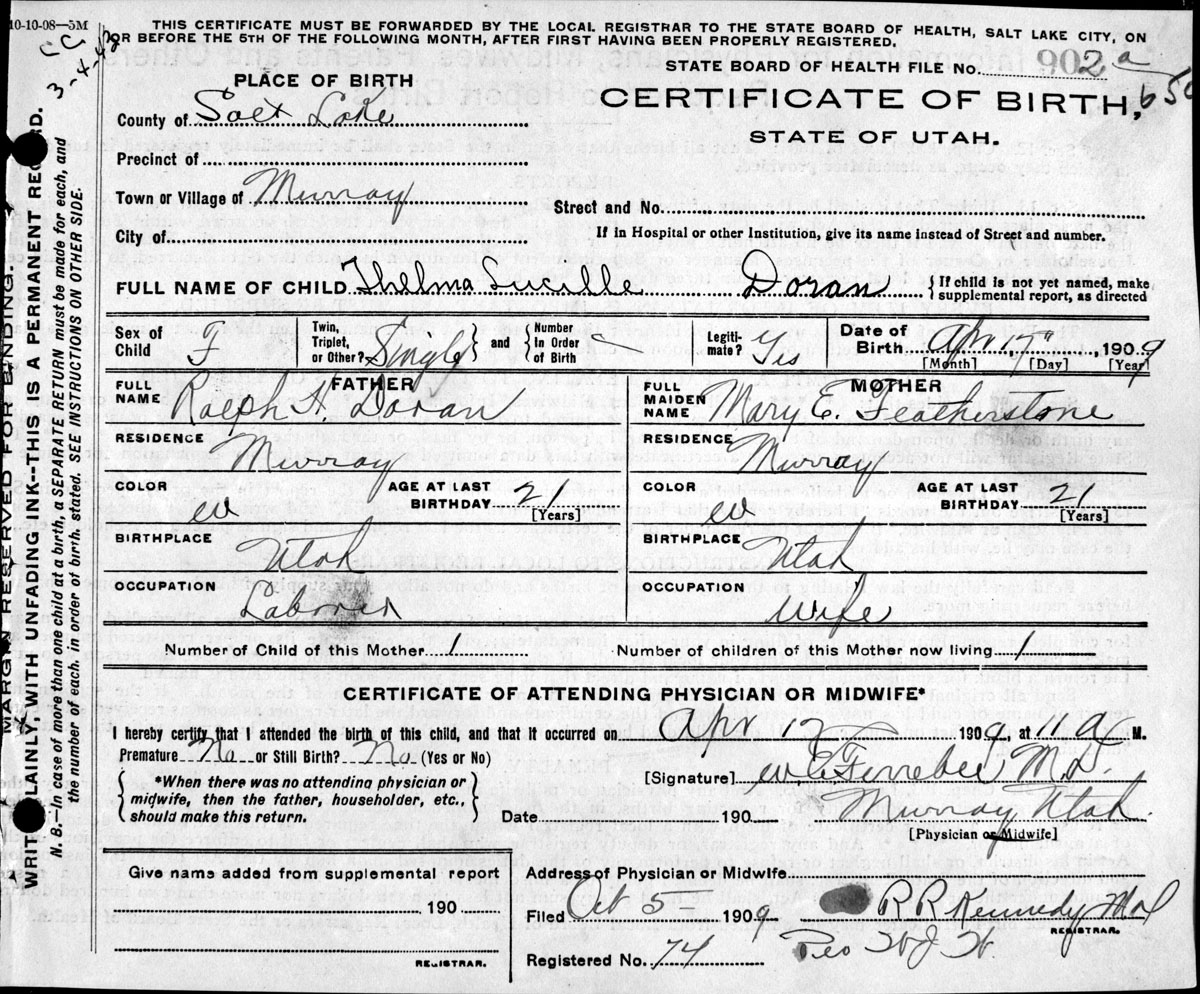 10-10-08—5M
THIS CERTIFICATE MUST BE FORWARDED BY THE LOCAL REGISTRAR TO THE STATE BOARD OF HEALTH, SALT LAKE CITY, ON
OR BEFORE THE 5TH OF THE FOLLOWING MONTH, AFTER FIRST HAVING BEEN PROPERLY REGISTERED.
3-4-42
STATE BOARD OF HEALTH FILE NO. 902 a
PLACE OF BIRTH
CERTIFICATE OF BIRTH,
STATE OF UTAH.
County of Salt Lake
Precinct of
Town or Village of Murray
Street and No.
City of
If in Hospital or other Institution, give its name instead of Street and number.
FULL NAME OF CHILD Thelma Lucille Doran { If child is not yet named, make
supplemental report, as directed
Sex of
Child F
Twin,
Triplet,
or Other? Single } and { Number
In Order
of Birth —
Legiti-
mate? Yes
Date of
Birth Apr 17", 1909
[Month] [Day] [Year]
FATHER
FULL
NAME Ralph H. Doran
MOTHER
FULL
MAIDEN
NAME Mary E. Featherstone
RESIDENCE Murray
RESIDENCE Murray
COLOR W AGE AT LAST
BIRTHDAY 21
[Years]
COLOR W AGE AT LAST
BIRTHDAY 21
[Years]
BIRTHPLACE Utah
BIRTHPLACE Utah
OCCUPATION Laborer
OCCUPATION Wife
Number of Child of this Mother 1 Number of children of this Mother now living 1
CERTIFICATE OF ATTENDING PHYSICIAN OR MIDWIFE*
I hereby certify that I attended the birth of this child, and that it occurred on Apr 17 1909, at 11 a M.
Premature No or Still Birth? No (Yes or No)
{ *When there was no attending physician or
midwife, then the father, householder, etc.,
should make this return. }
[Signature] W C Ferrebee M.D.
Date 190 Murray Utah.
[Physician or Midwife]
Give name added from supplemental report
190
REGISTRAR.
Address of Physician or Midwife
Filed Oct 5 — 1909 R R Kennedy Md
REGISTRAR.
Registered No. 74
MARGIN RESERVED FOR BINDING.
WRITE PLAINLY, WITH UNFADING INK--THIS IS A PERMANENT RECORD.
N. B.—In case of more than one child at a birth, a SEPARATE RETURN must be made for each, and
the number of each, in order of birth, stated. SEE INSTRUCTIONS ON OTHER SIDE.